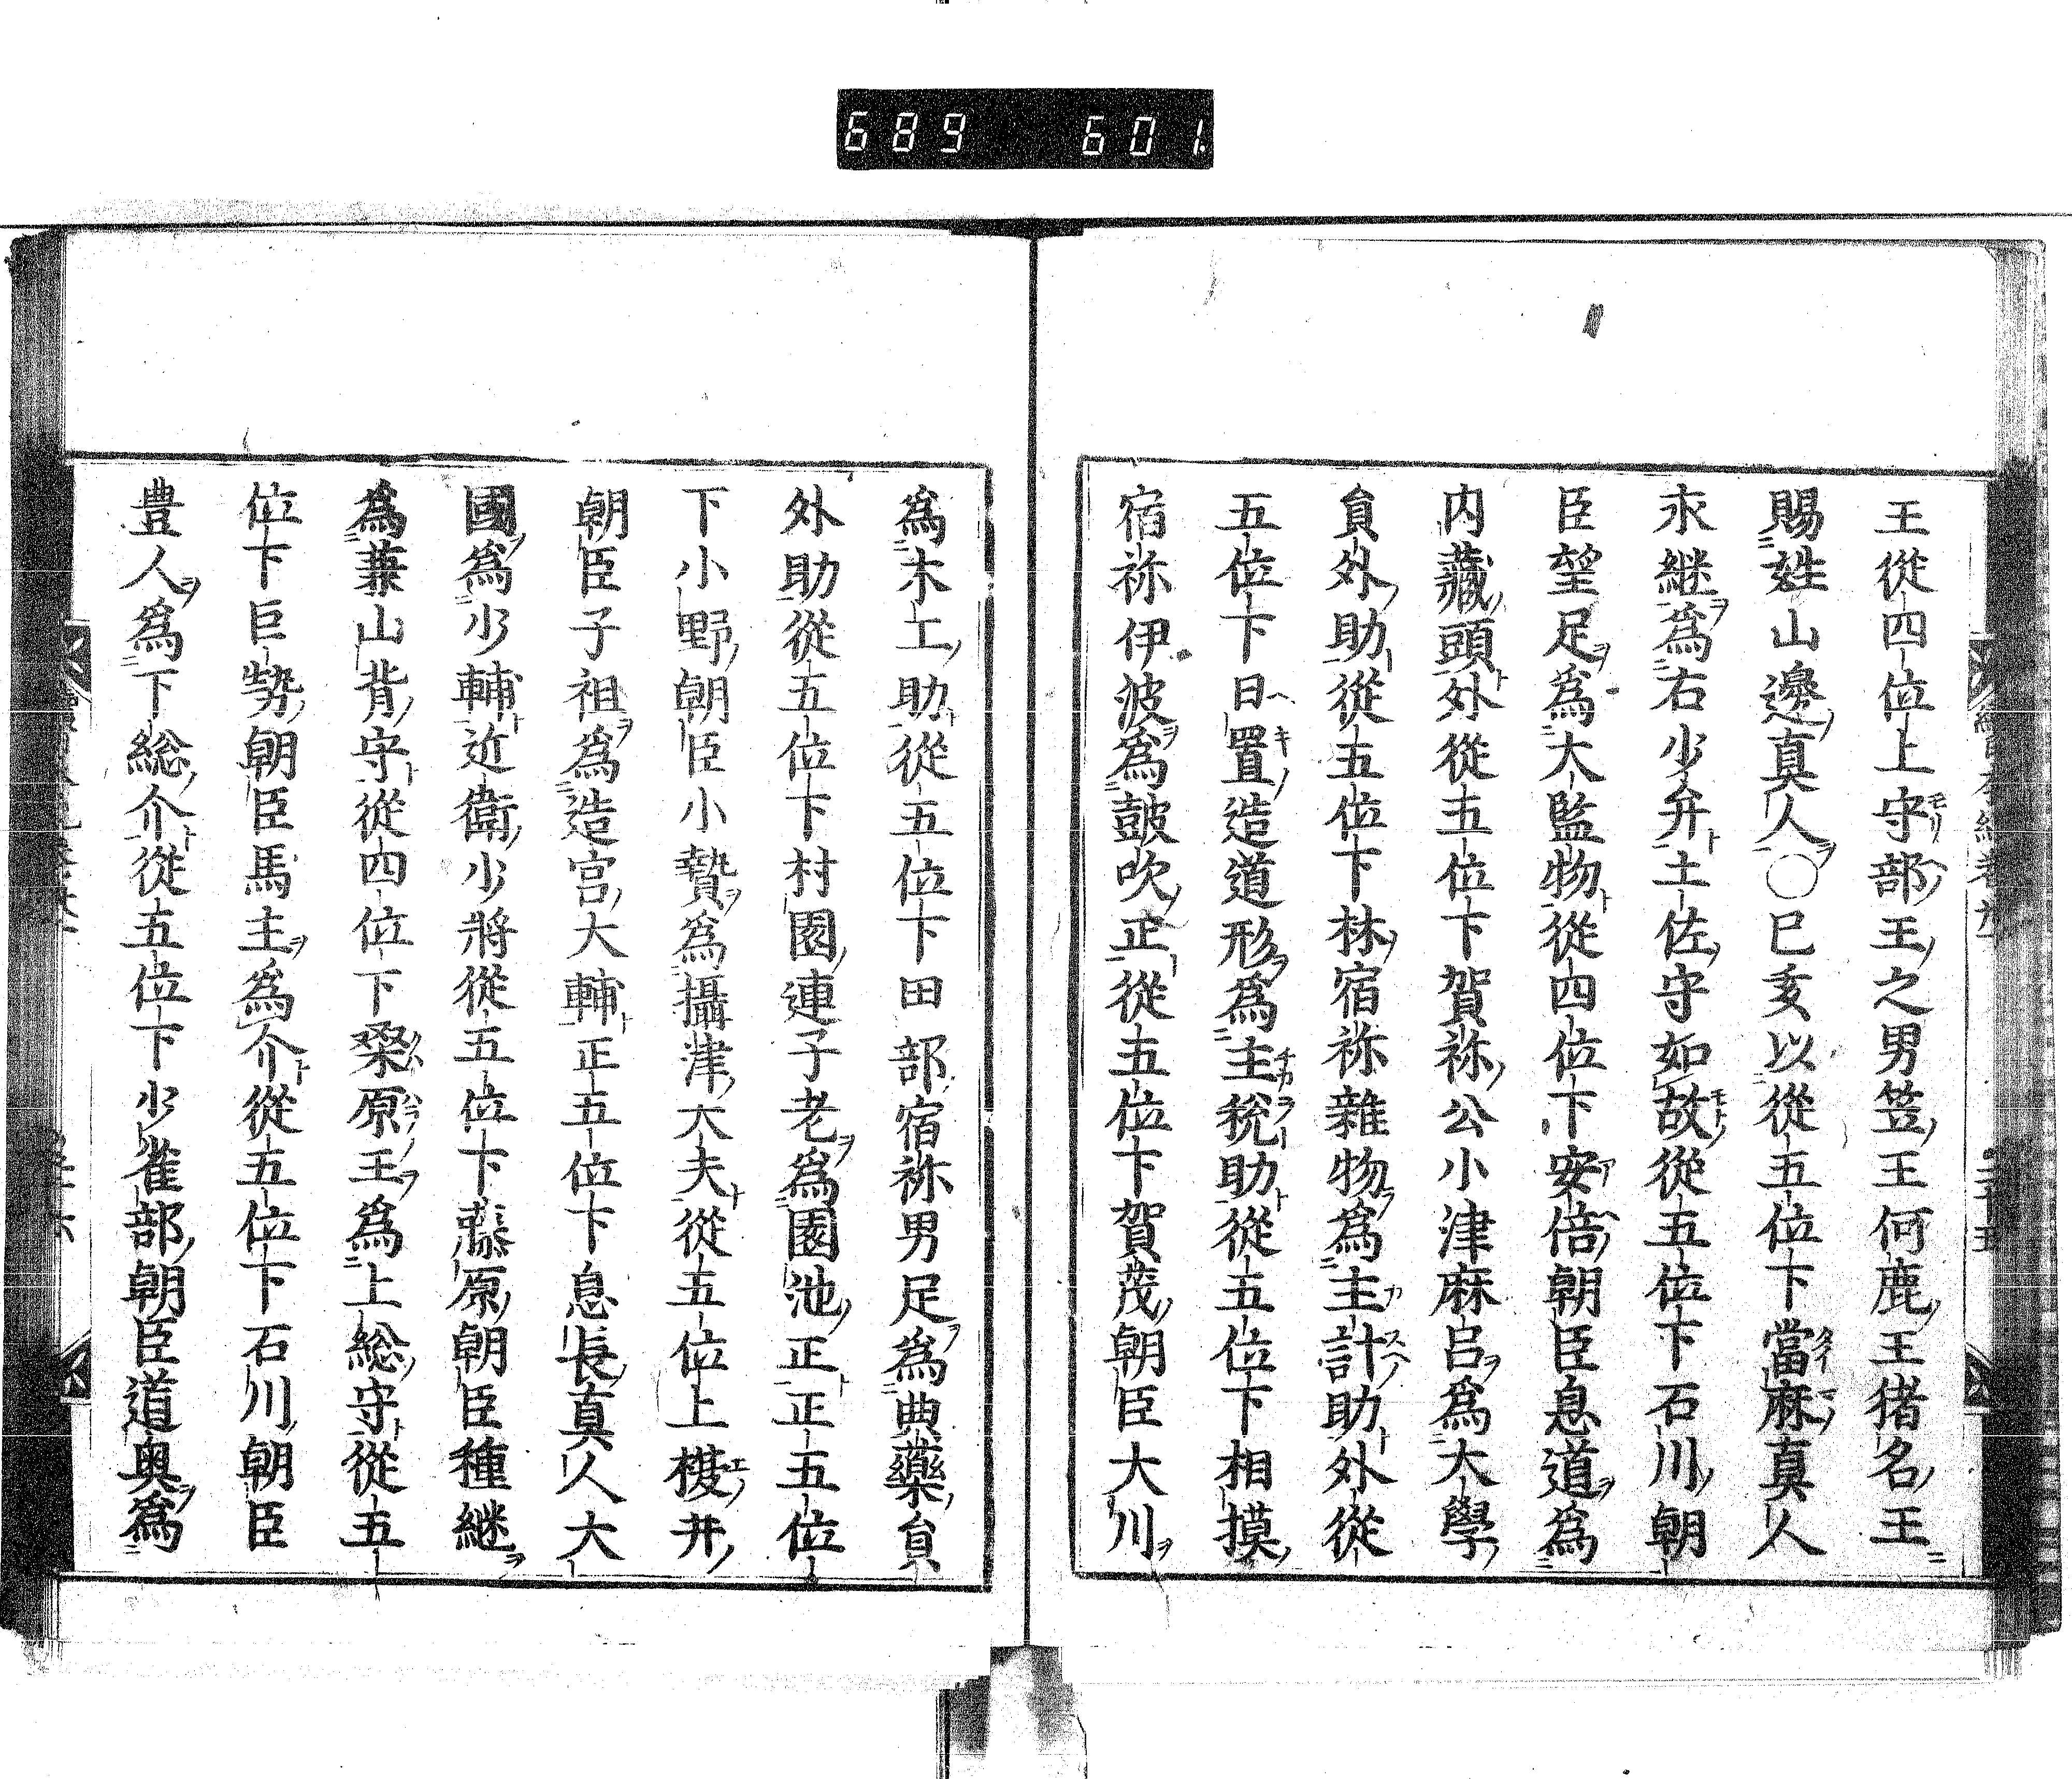 689 601
王從四位上守部王之男笠王何鹿王猪名王
賜姓山邊真人○巳亥以從五位下當麻真人
永継為右少弁土佐守如故從五位下石川朝
臣望足為大監物從四位下安倍朝臣息道為
内藏頭外從五位下賀祢公小津麻呂為大學
員外助從五位下林宿祢雜物為主計助外從
五位下日置造道形為主税助從五位下相摸
宿祢伊波為皷吹正從五位下賀茂朝臣大川
為木工助從五位下田部宿祢男足為典藥員
外助從五位下村國連子老為園池正正五位
下小野朝臣小贄為攝津大夫從五位上榎井
朝臣子祖為造宮大輔正五位下息長真人大
國為少輔近衛少將從五位下藤原朝臣種継
為蒹山背守從四位下桑原王為上総守從五
位下巨勢朝臣馬主為介從五位下石川朝臣
豊人為下総介從五位下少雀部朝臣道奥為